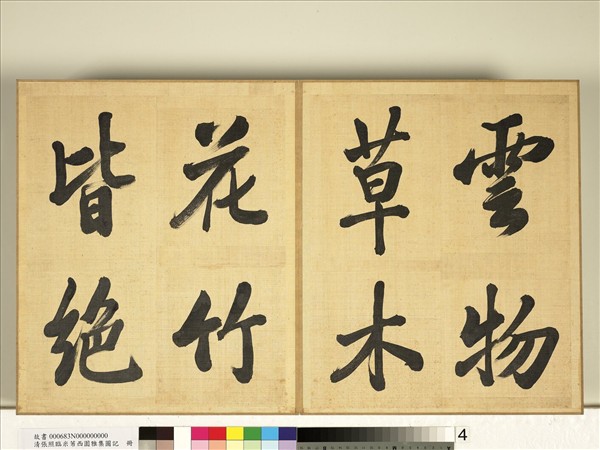 雲物
草木
花竹
皆絶
故書 000683N000000000
清張照臨米芾西園雅集圖記 冊
4